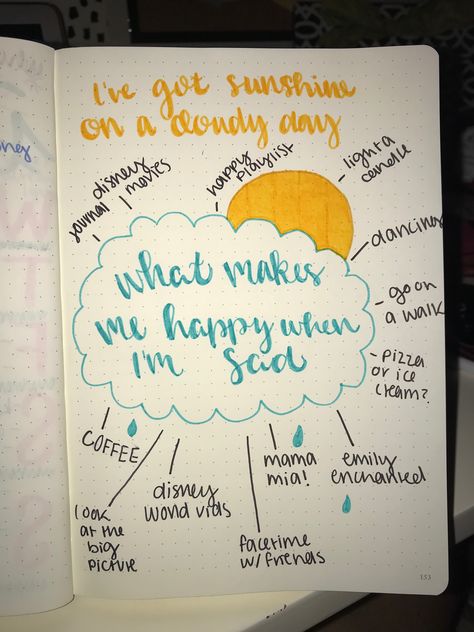 I've got sunshine
on a cloudy day
journal
disney
movies
happy
playlist
light a
candle
dancing
go on
a walk
- pizza
or ice
cream?
what makes
me happy when
I'm sad
COFFEE
look
at the
big
picture
disney
world vids
facetime
w/friends
mama
mia!
emily
enchanted
153